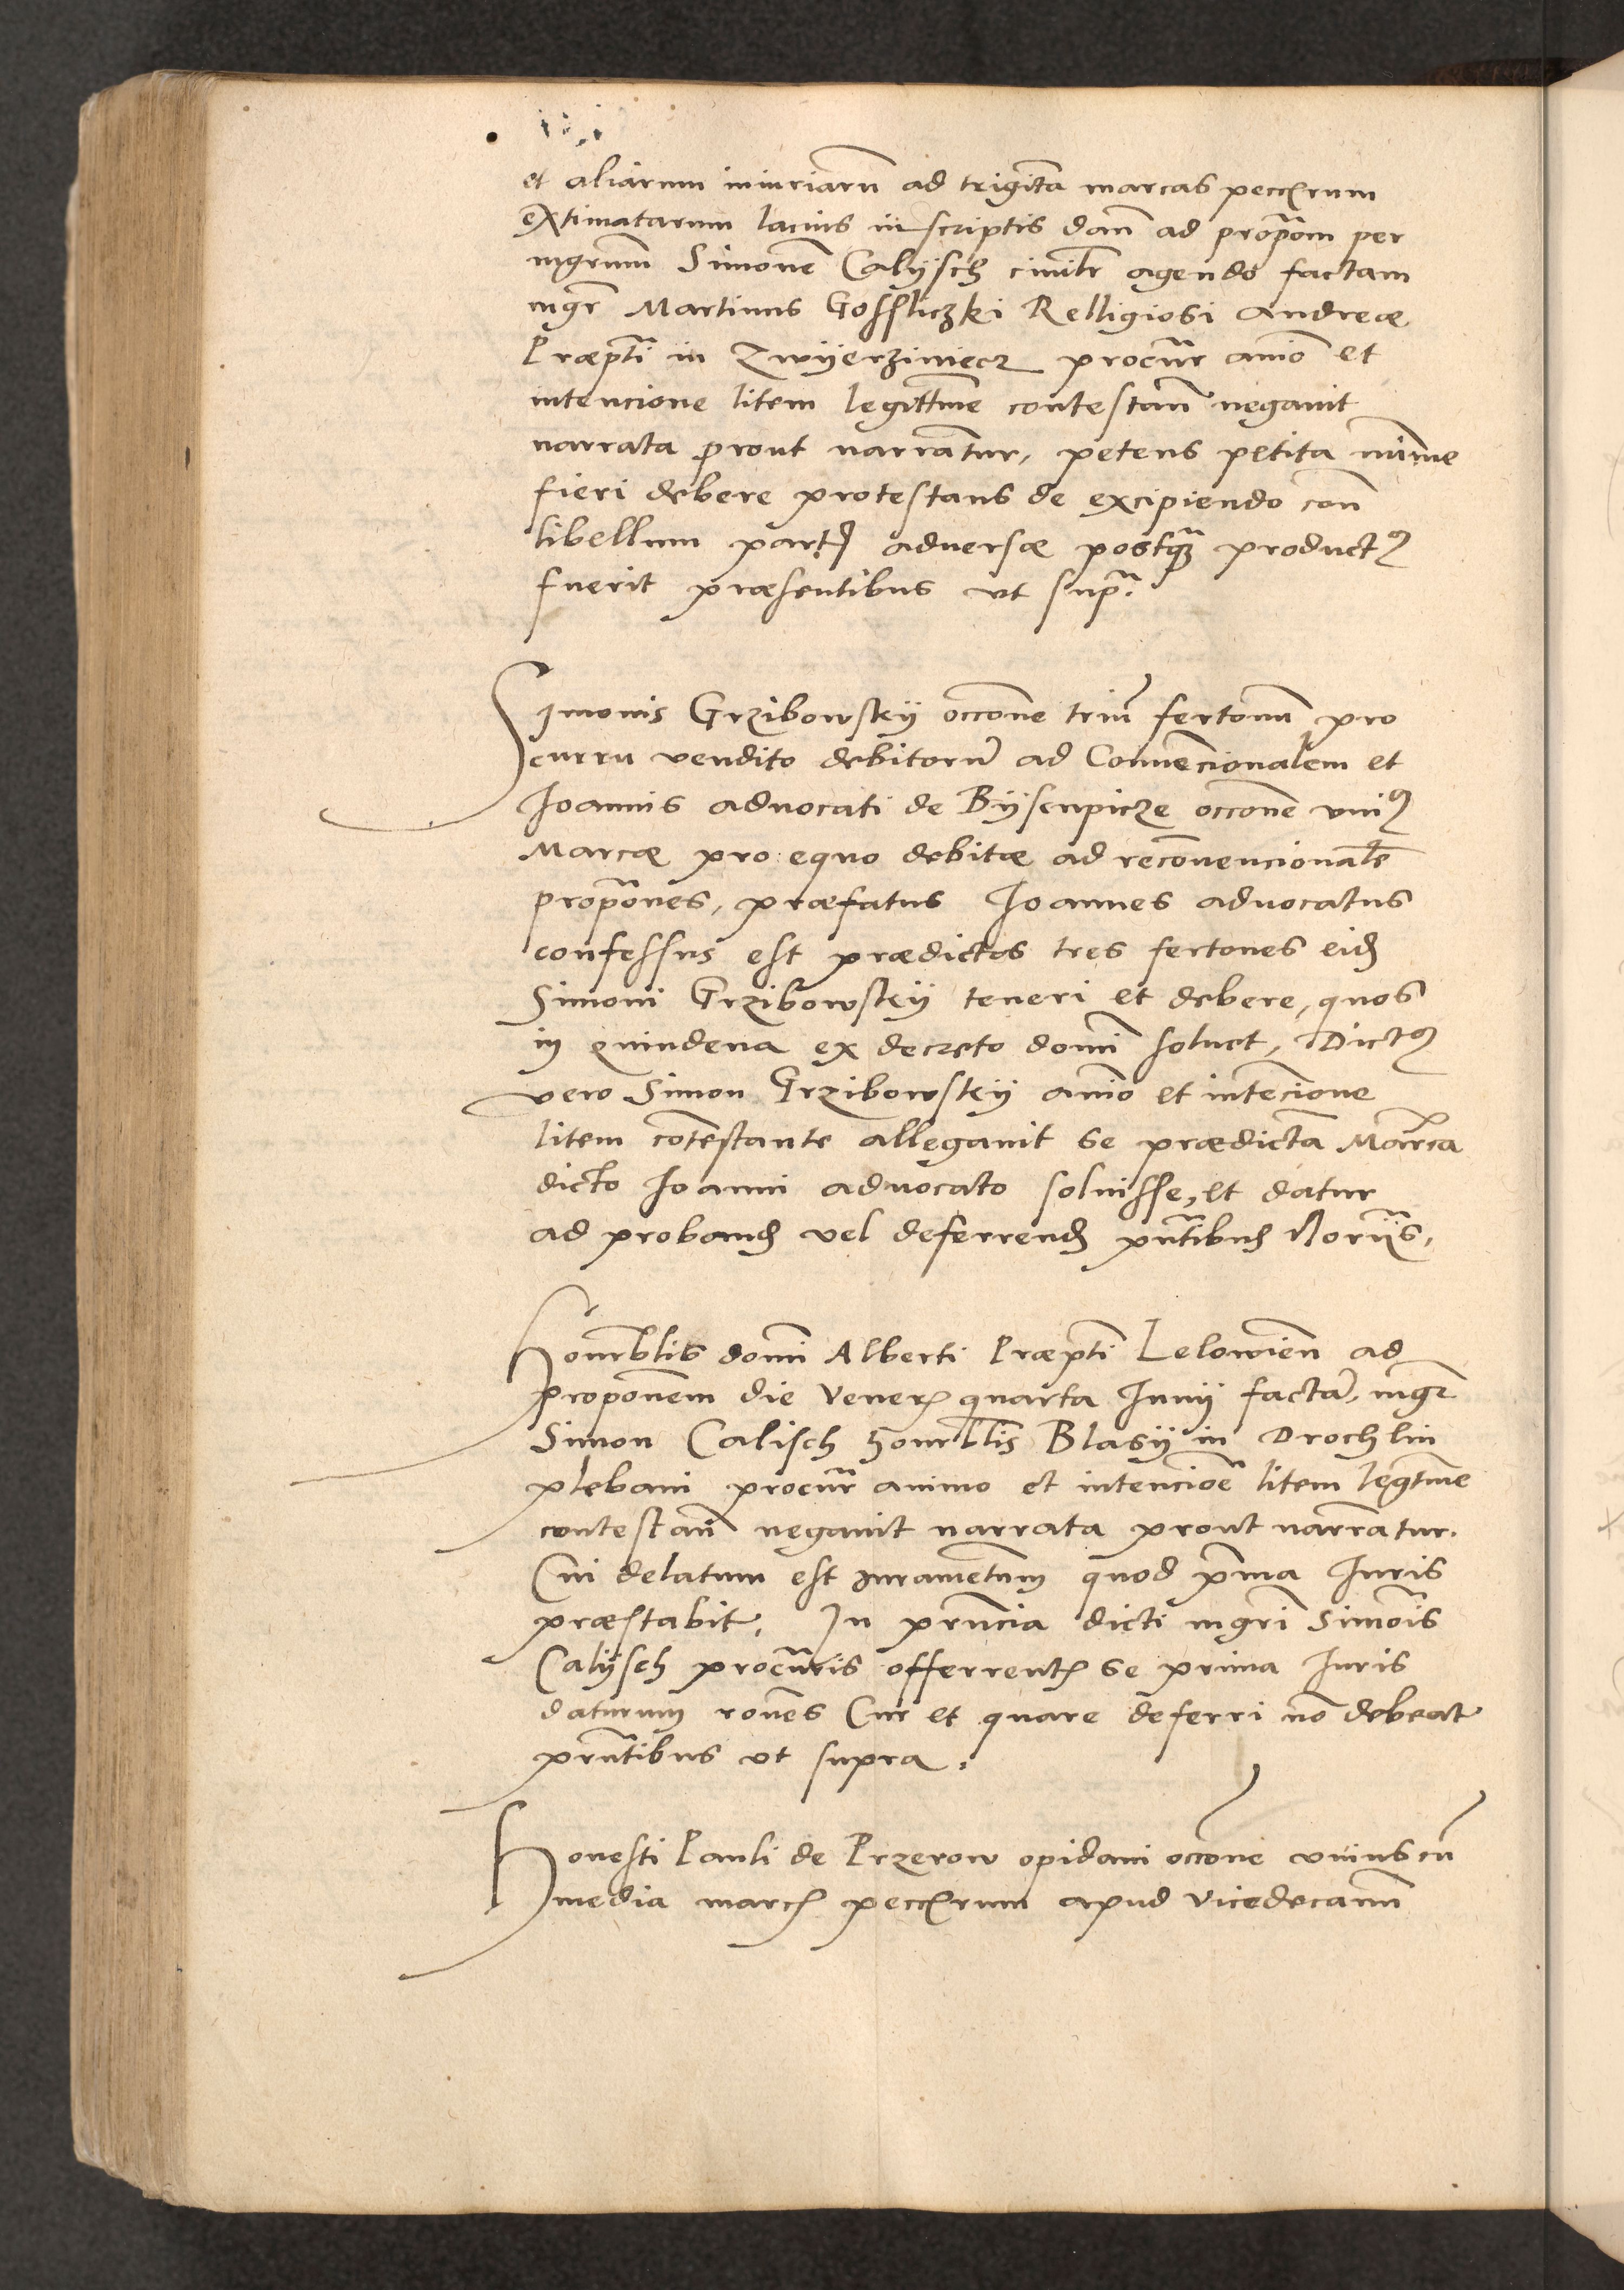 et aliarum iniuriarũ ad trigĩta marcas pecc̃rum
extimatarum lacius in scriptis dañ ad propõm per
mgrũm Simonẽ Calÿsch ciuilr̃ agendo factam
mgr̃ Martinus Gossliczki Relligiosi Andreæ
Præpti in Zwÿerziniecz procur̃ anio et
intencione litem legittime contestañ negauit
narrata prout narrãtur, petens petita minime
fieri debere protestans de excipiendo con̄
libellum partꝭ aduersæ postqꝫ productꝰ
fuerit præsentibus vt supr̃.

Simonis Grzibowskÿ occone triũ fertonũ pro
curru vendito debitorũ ad Conuencionalem et
Joannis aduocati de Bÿscupicze occone vniꝰ
Marcæ pro equo debitæ ad reconuencionalẽ
propones, præfatus Joannes aduocatus
confessus est prædictos tres fertones eidꝫ
Simoni Grzibowskÿ teneri et debere, quos
in quindena ex decreto domi soluet, Dictꝰ
vero Simon Grzibowskÿ anio et intencione
litem cotestante allegauit se prædictã Marcã
dicto Joanni aduocato soluisse, et datur
ad probandꝫ vel deferrendꝫ pñtibus Norijs.

Honorblis domi Alberti Præpti Lelowieñ ad
proponem die Venerꝭ quarta Junij factã, mgr̃
Simon Calisch honorblis Blasÿ in Drochlin
plebani procur̃ animo et intencioe litem legitme
contestañ negauit narrata prout narratur.
Cui delatum est iuramentum quod p̃ma Juris
præstabit. In prñcia dicti mgri Simois
Calÿsch procuris offerrentꝭ se prima Juris
daturum rones Cur et quare deferri no debeat
prñtibus vt supra.

Honesti Pauli de Przerow opidani occone vnius cũ
media marcꝭ pecc̃rum apud vicedecanũ